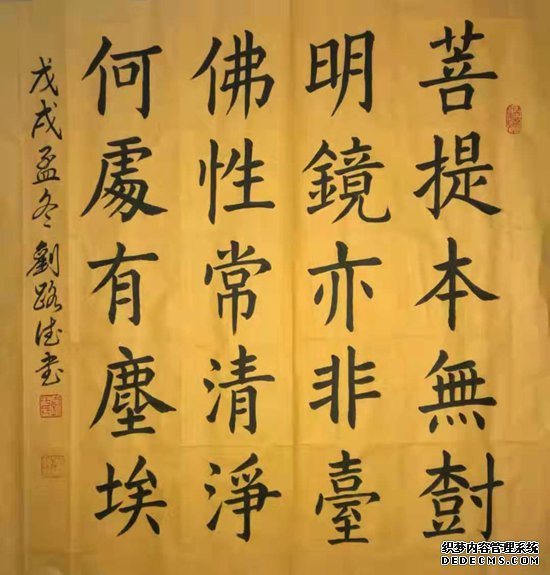 菩提本無樹
明鏡亦非臺
佛性常清淨
何處有塵埃
戊戌孟冬劉路书
织梦内容管理系统
DEDECMS.COM